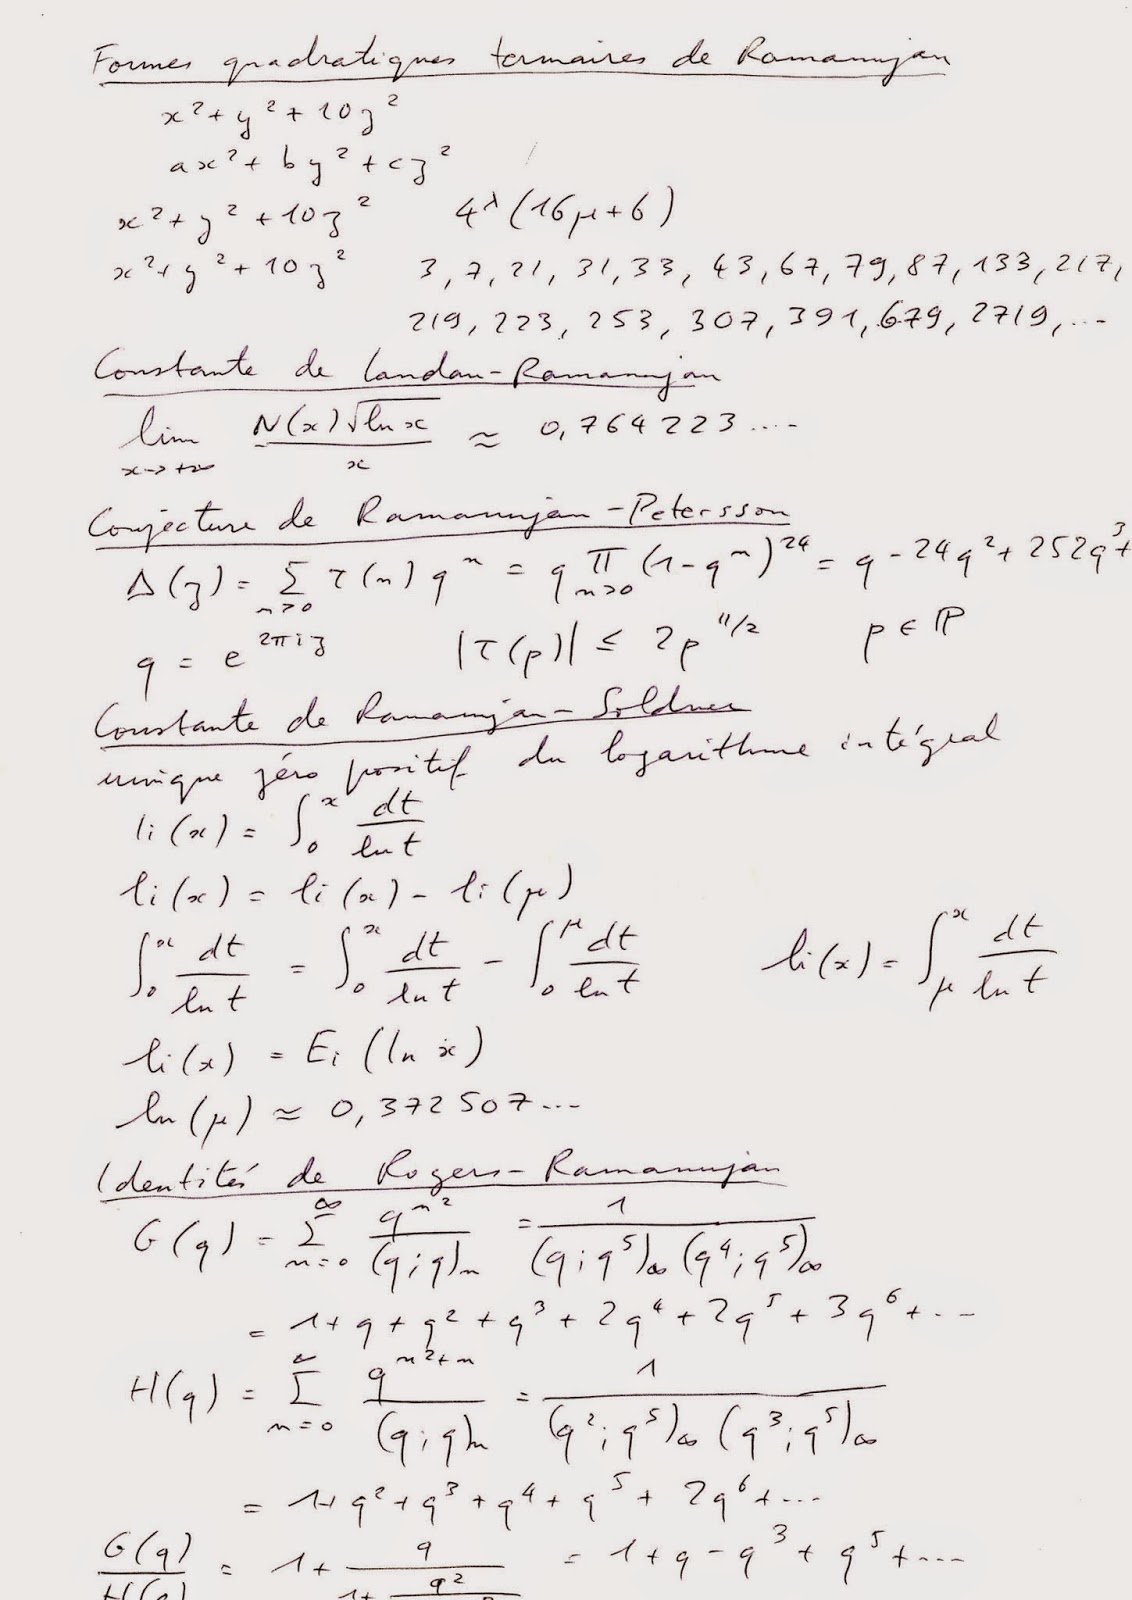 Formes quadratiques ternaires de Ramanujan
x² + y² + 10z²
ax² + by² + cz²
x² + y² + 10z² 4^λ(16μ+6)
x² + y² + 10z² 3, 7, 21, 31, 33, 43, 67, 79, 87, 133, 217,
219, 223, 253, 307, 391, 679, 2719, ...
Constante de Landau-Ramanujan
lim_{x→+∞} N(x)√(ln x) / x ≈ 0,764223....
Conjecture de Ramanujan-Petersson
Δ(z) = Σ_{n>0} τ(n) q^n = q Π_{n>0} (1-q^n)^24 = q - 24q² + 252q³ +
q = e^{2πiz} |τ(p)| ≤ 2p^{11/2} p ∈ ℙ
Constante de Ramanujan-Soldner
unique zéro positif du logarithme intégral
li(x) = ∫_0^x dt / ln t
li(x) = li(x) - li(μ)
∫_0^x dt / ln t = ∫_0^x dt / ln t - ∫_0^μ dt / ln t li(x) = ∫_μ^x dt / ln t
li(x) = Ei(ln x)
ln(μ) ≈ 0,372507...
Identités de Rogers-Ramanujan
G(q) = Σ_{n=0}^∞ q^{n²} / (q;q)_n = 1 / (q;q⁵)_∞ (q⁴;q⁵)_∞
= 1 + q + q² + q³ + 2q⁴ + 2q⁵ + 3q⁶ + ...
H(q) = Σ_{n=0}^∞ q^{n²+n} / (q;q)_n = 1 / (q²;q⁵)_∞ (q³;q⁵)_∞
= 1 + q² + q³ + q⁴ + q⁵ + 2q⁶ + ...
G(q) / H(q) = 1 + q / 1 + q² = 1 + q - q³ + q⁵ + ...